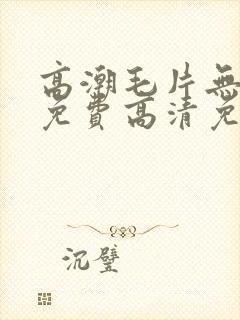 高潮毛片無
免費高清免
沉璧